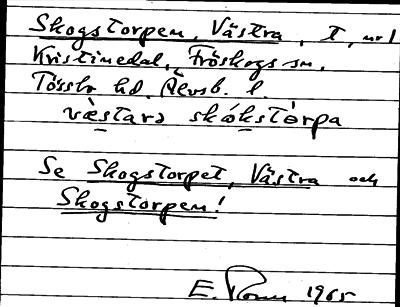 Skogstorpen, Västra, T, nr 1
Kristinedal, Fröskogs sn,
Tössbo hd. Älvsb. l.
væstarə skókstòrpa
Se Skogstorpet, Västra och
Skogstorpen!
E. 1965